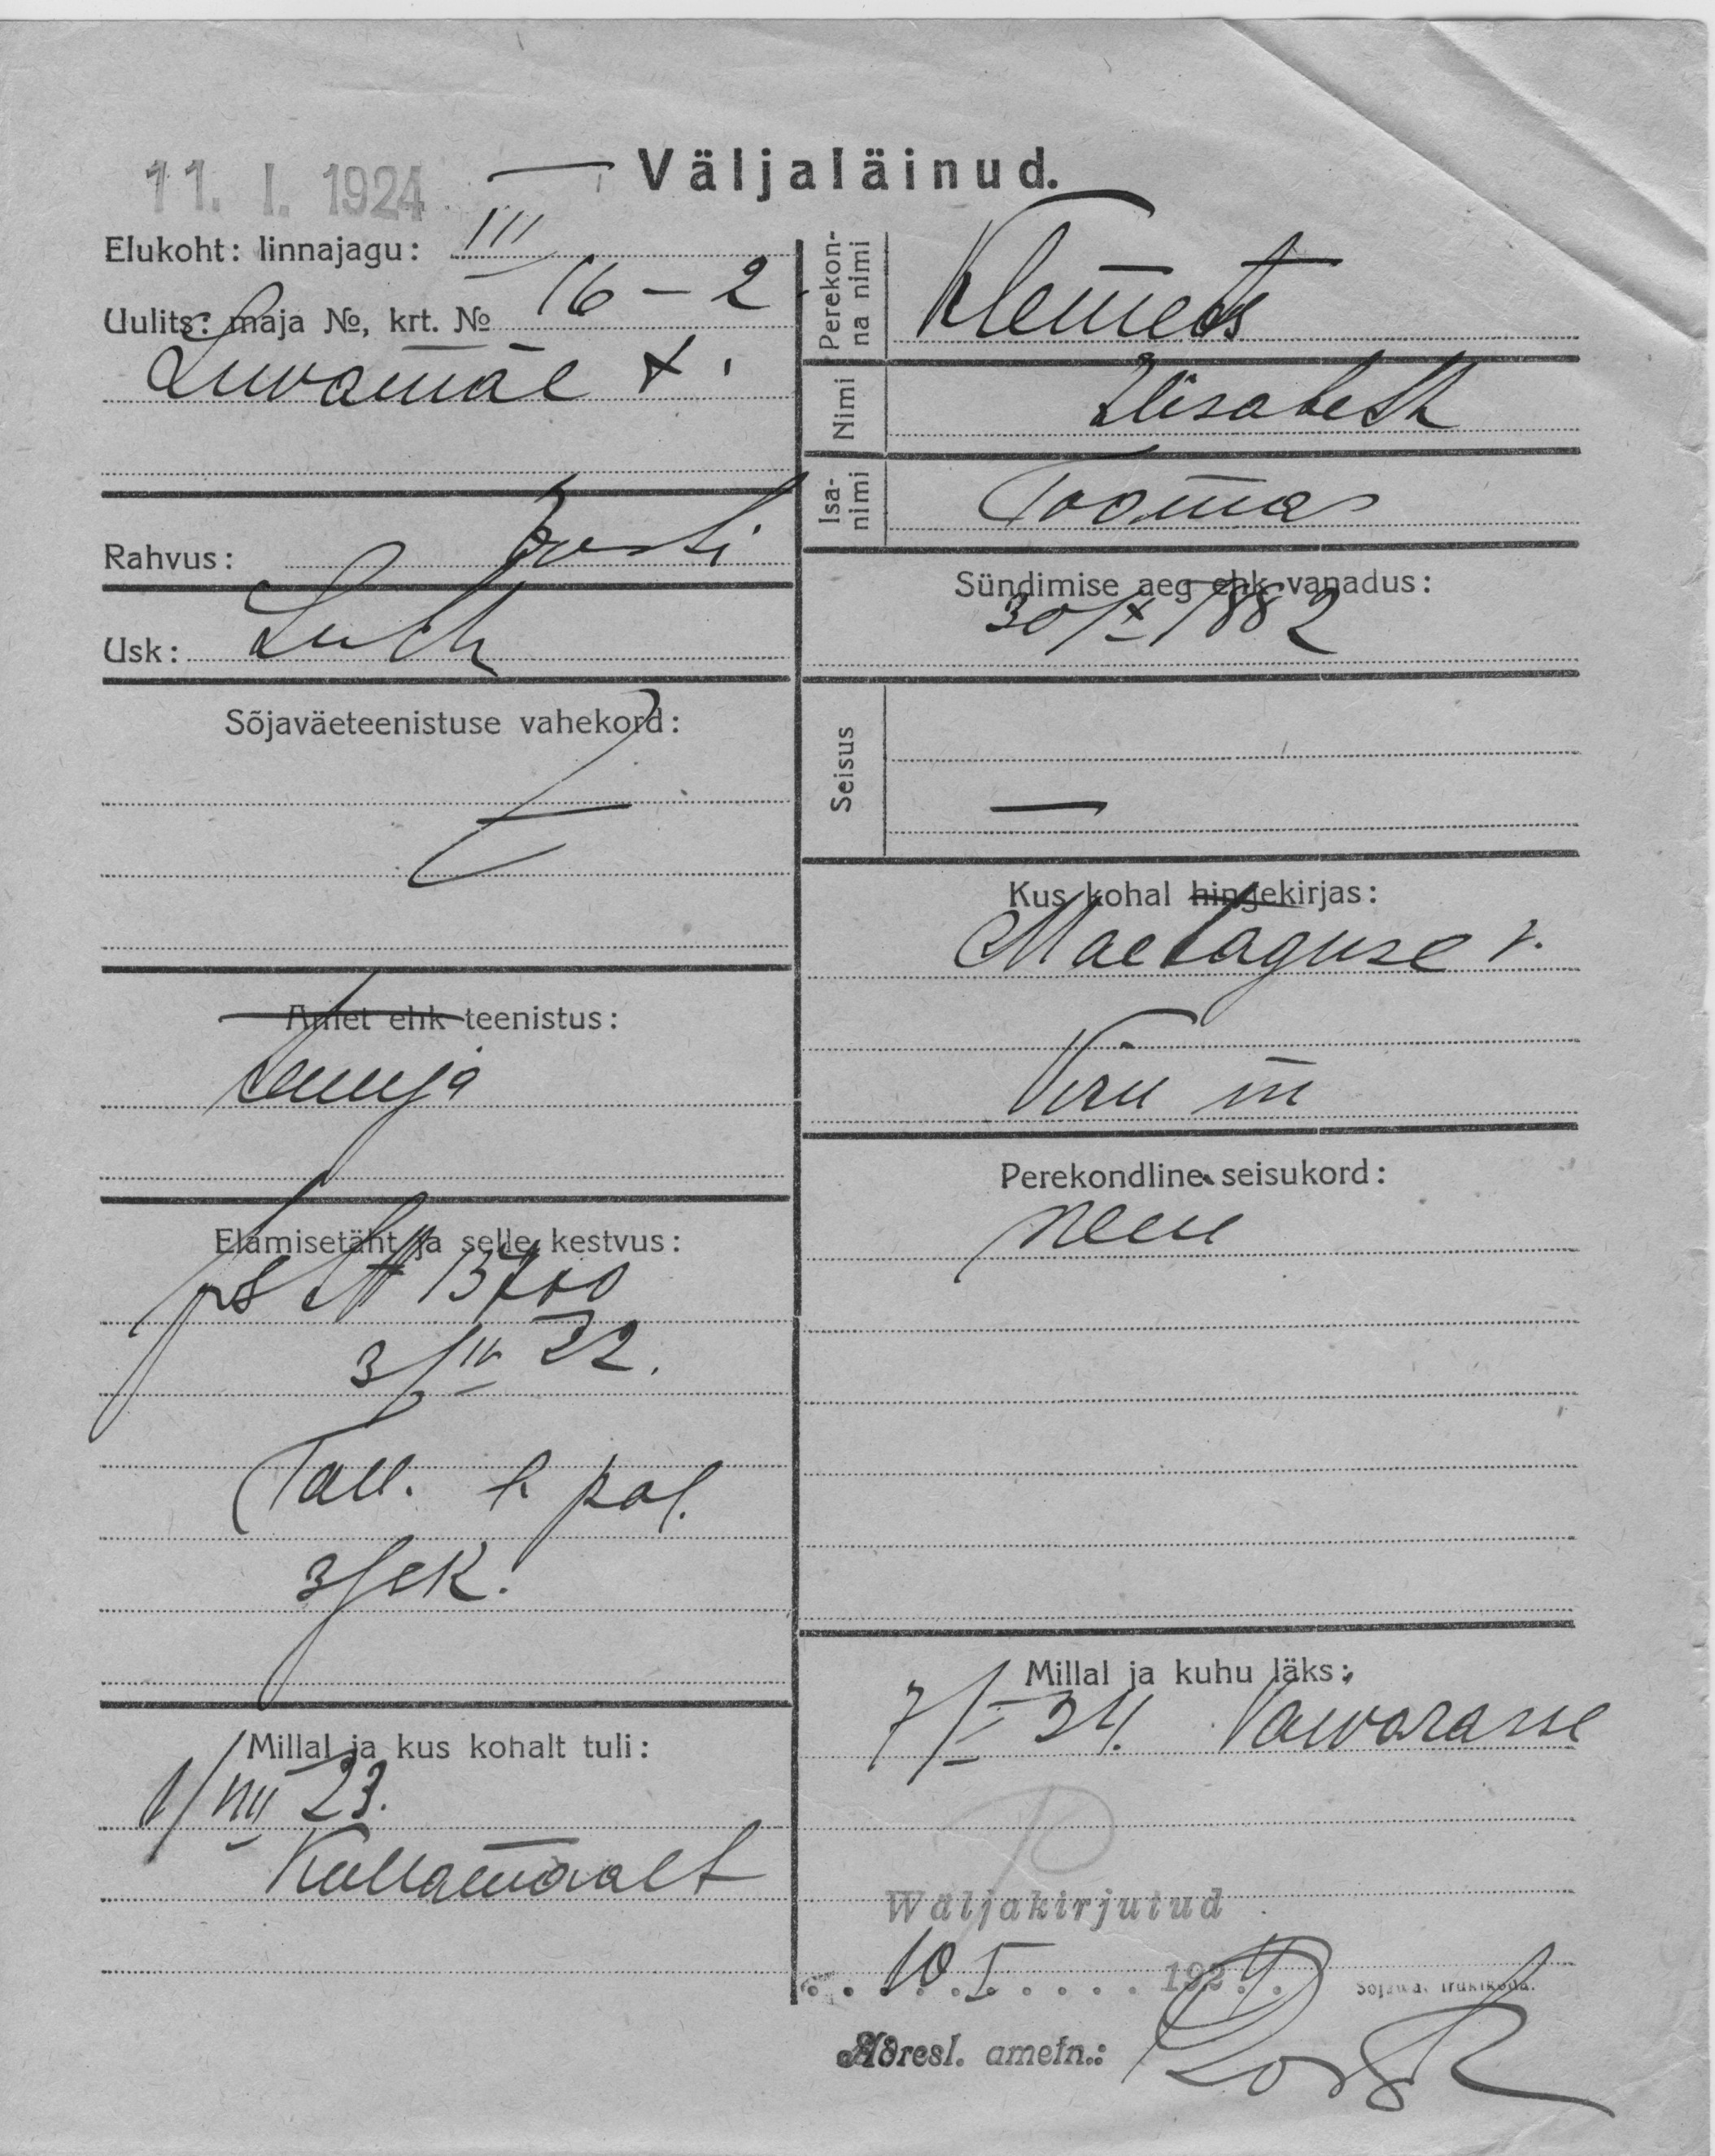 11. I. 1924
Väljaläinud.
Elukoht: linnajagu: III
Uulits: maja №, krt. № 16 – 2
Liivamäe t.
Rahvus: Eesti
Usk: Luth
Sõjaväeteenistuse vahekord:
—
Amet ehk teenistus:
Elamisetäht ja selle kestvus:
3/IV 22.
Tall. l. pol.
3 jek.
Millal ja kus kohalt tuli:
1/VIII 23.
Kullamaalt
Perekonna nimi
Klemets
Nimi
Elisabeth
Isanimi
Toomas
Sündimise aeg ehk vanadus:
30/X 1882
Seisus
—
Kus kohal hingekirjas:
Maetaguse v.
Viru m
Perekondline seisukord:
neiu
Millal ja kuhu läks:
7/I 24. Vaivarasse
Wäljakirjutud
10. I 1924.
Sõjawä. trükikoda.
Adresl. ametn.: